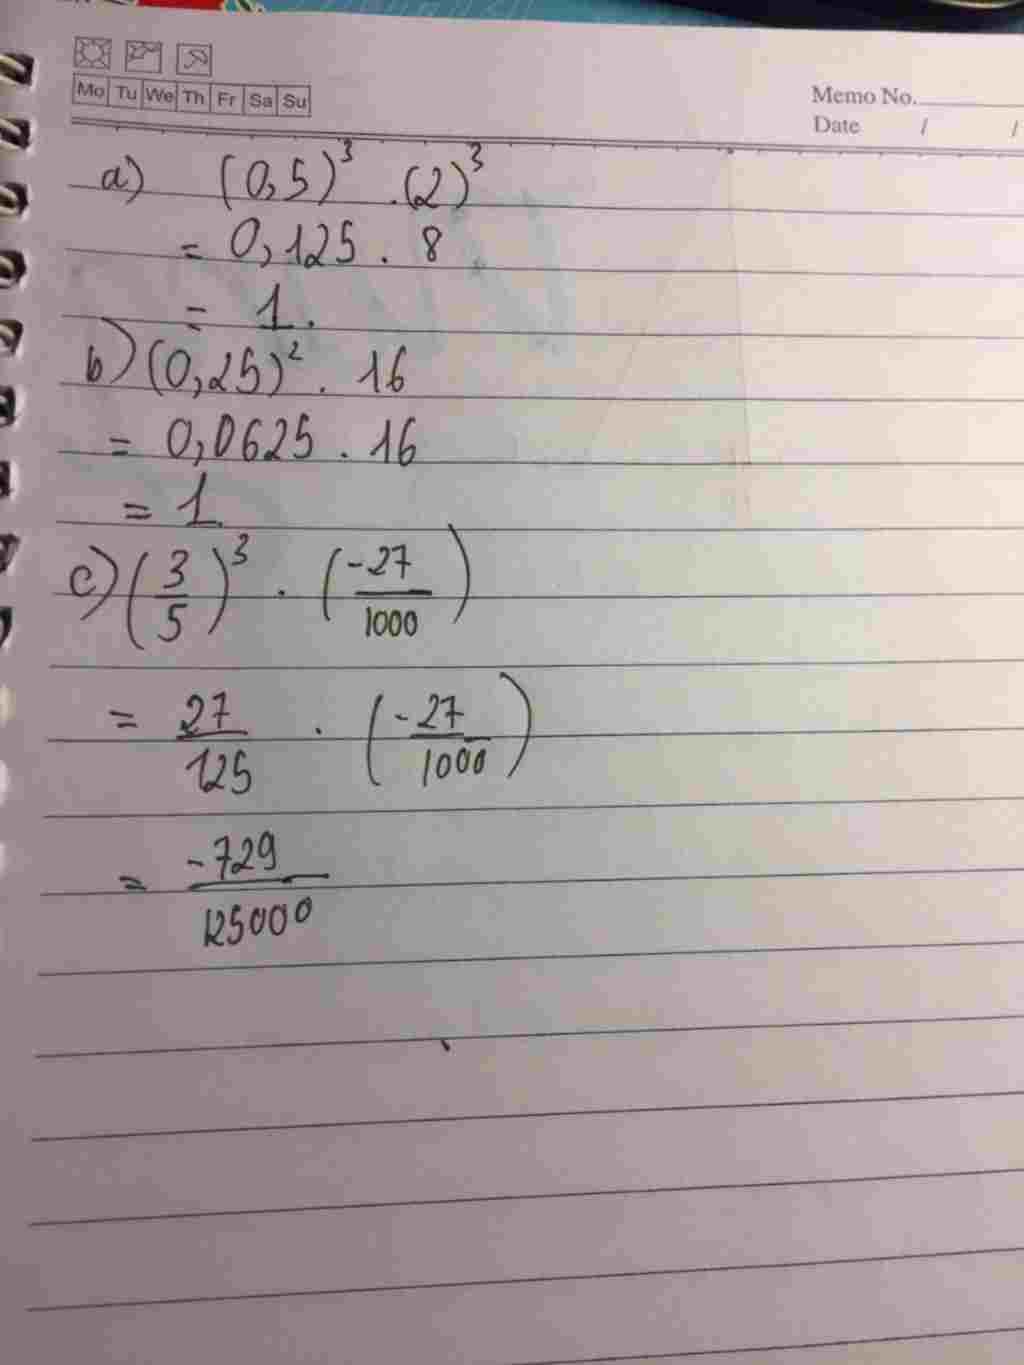 Mo Tu We Th Fr Sa Su
Memo No.
Date / /
a) (0,5)³ . (2)³
= 0,125 . 8
= 1.
b) (0,25)² . 16
= 0,0625 . 16
= 1.
c) (3/5)³ . (-27/1000)
= 27/125 . (-27/1000)
= -729/125000